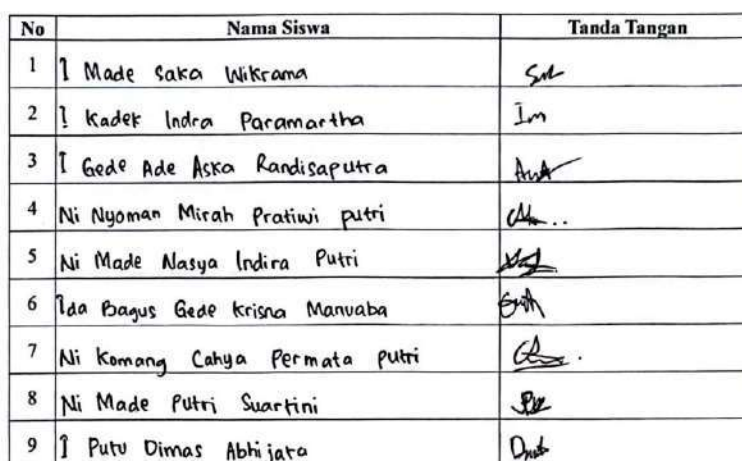 No Nama Siswa Tanda Tangan
1 I Made Saka Wikrama
2 I Kadek Indra Paramartha
3 I Gede Ade Aska Randisaputra
4 Ni Nyoman Mirah Pratiwi putri
5 Ni Made Nasya Indira Putri
6 Ida Bagus Gede Krisna Manuaba
7 Ni Komang Cahya Permata putri
8 Ni Made Putri Suartini
9 I Putu Dimas Abhijata